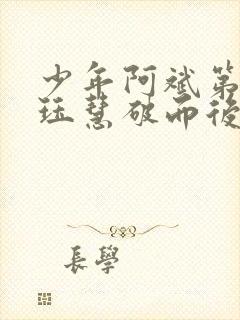 少年阿斌第
珏慧破而後
長學